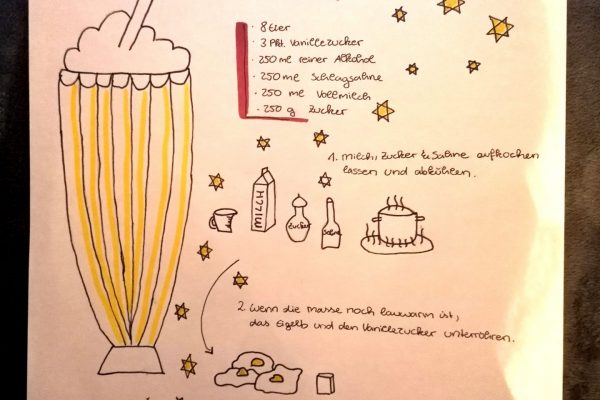 · 8 Eier
· 3 Pkt. Vanillezucker
· 250 ml reiner Alkohol
· 250 ml Schlagsahne
· 250 ml Vollmilch
· 250 g Zucker
1. Milch, Zucker & Sahne aufkochen
lassen und abkühlen.
MILCH
Zucker
Sahne
2. Wenn die Masse noch lauwarm ist,
das Eigelb und den Vanillezucker unterrühren.